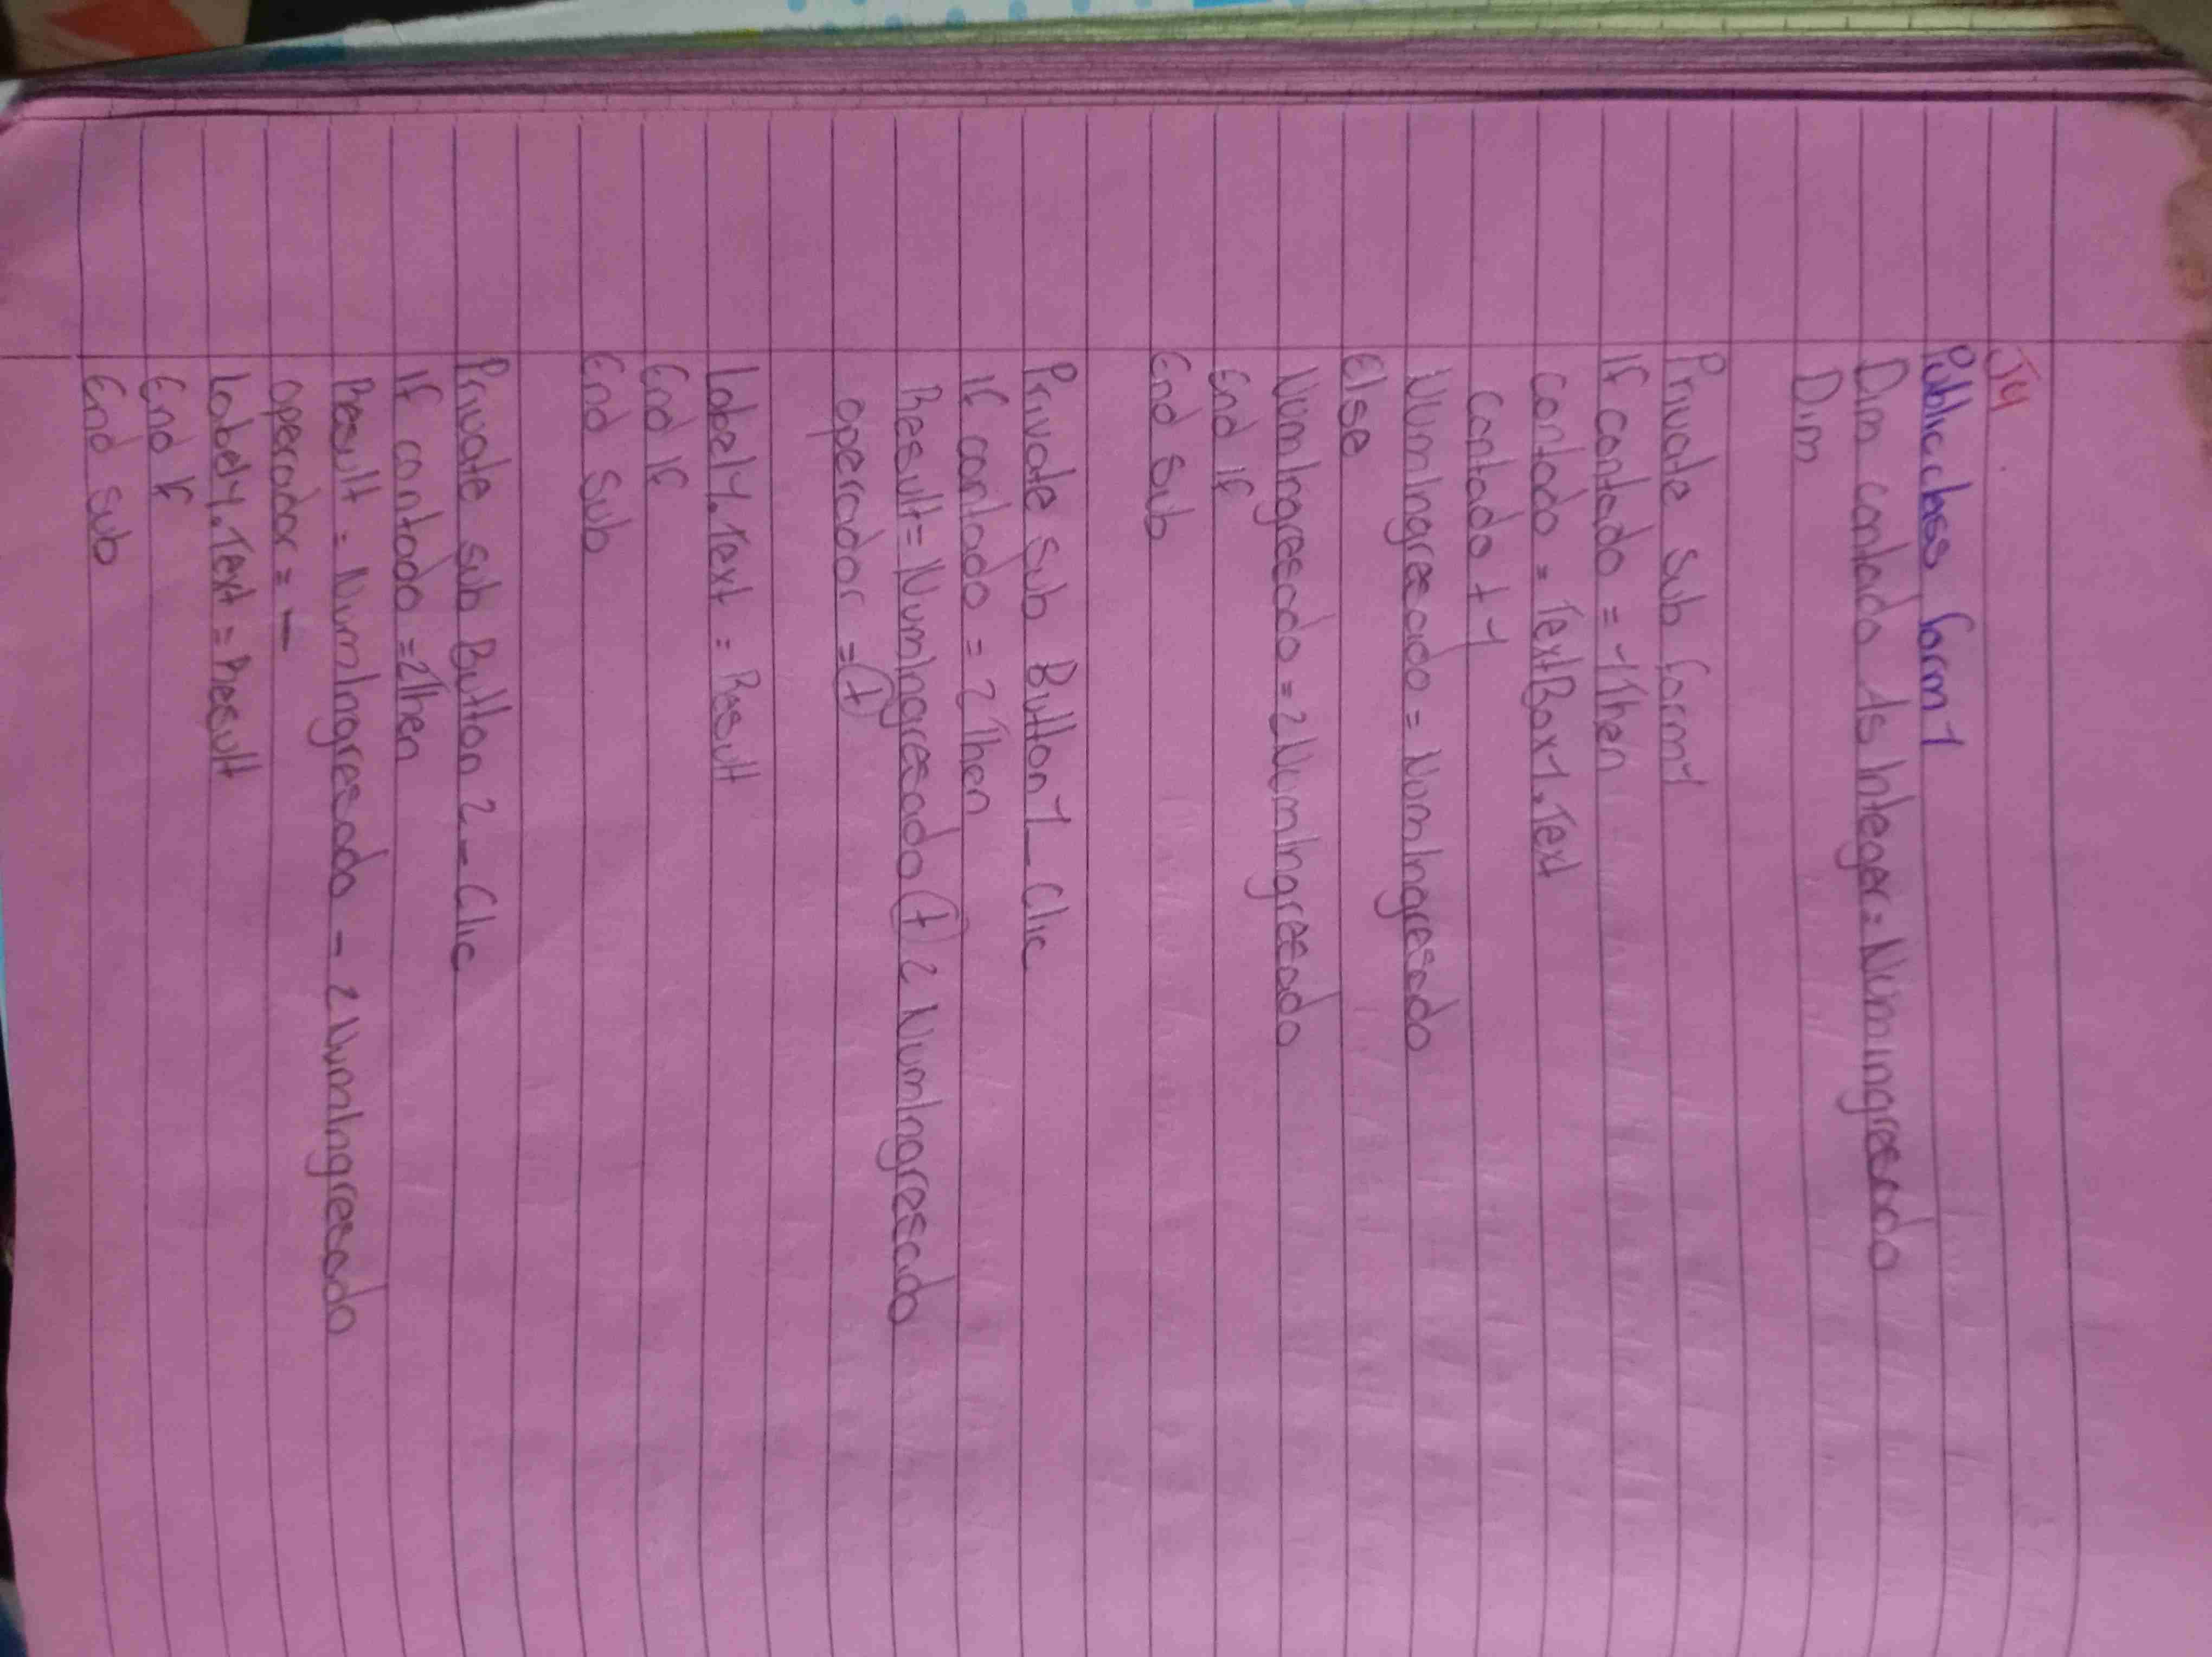 J4
Public class form1
Dim contado As Integer = NumIngresado
Dim
Private Sub form1
If contado = 1 Then
contado = TextBox1.Text
contado + 1
NumIngresado = NumIngresado
Else
NumIngresado = 2NumIngresado
End If
End Sub
Private Sub Button1_Clic
If contado = 2 Then
Result = NumIngresado + 2 NumIngresado
operador = +
Label4.Text = Result
End If
End Sub
Private sub Button 2_Clic
If contado = 2 Then
Result = NumIngresado - 2 NumIngresado
operador = -
Label4.Text = Result
End If
End Sub